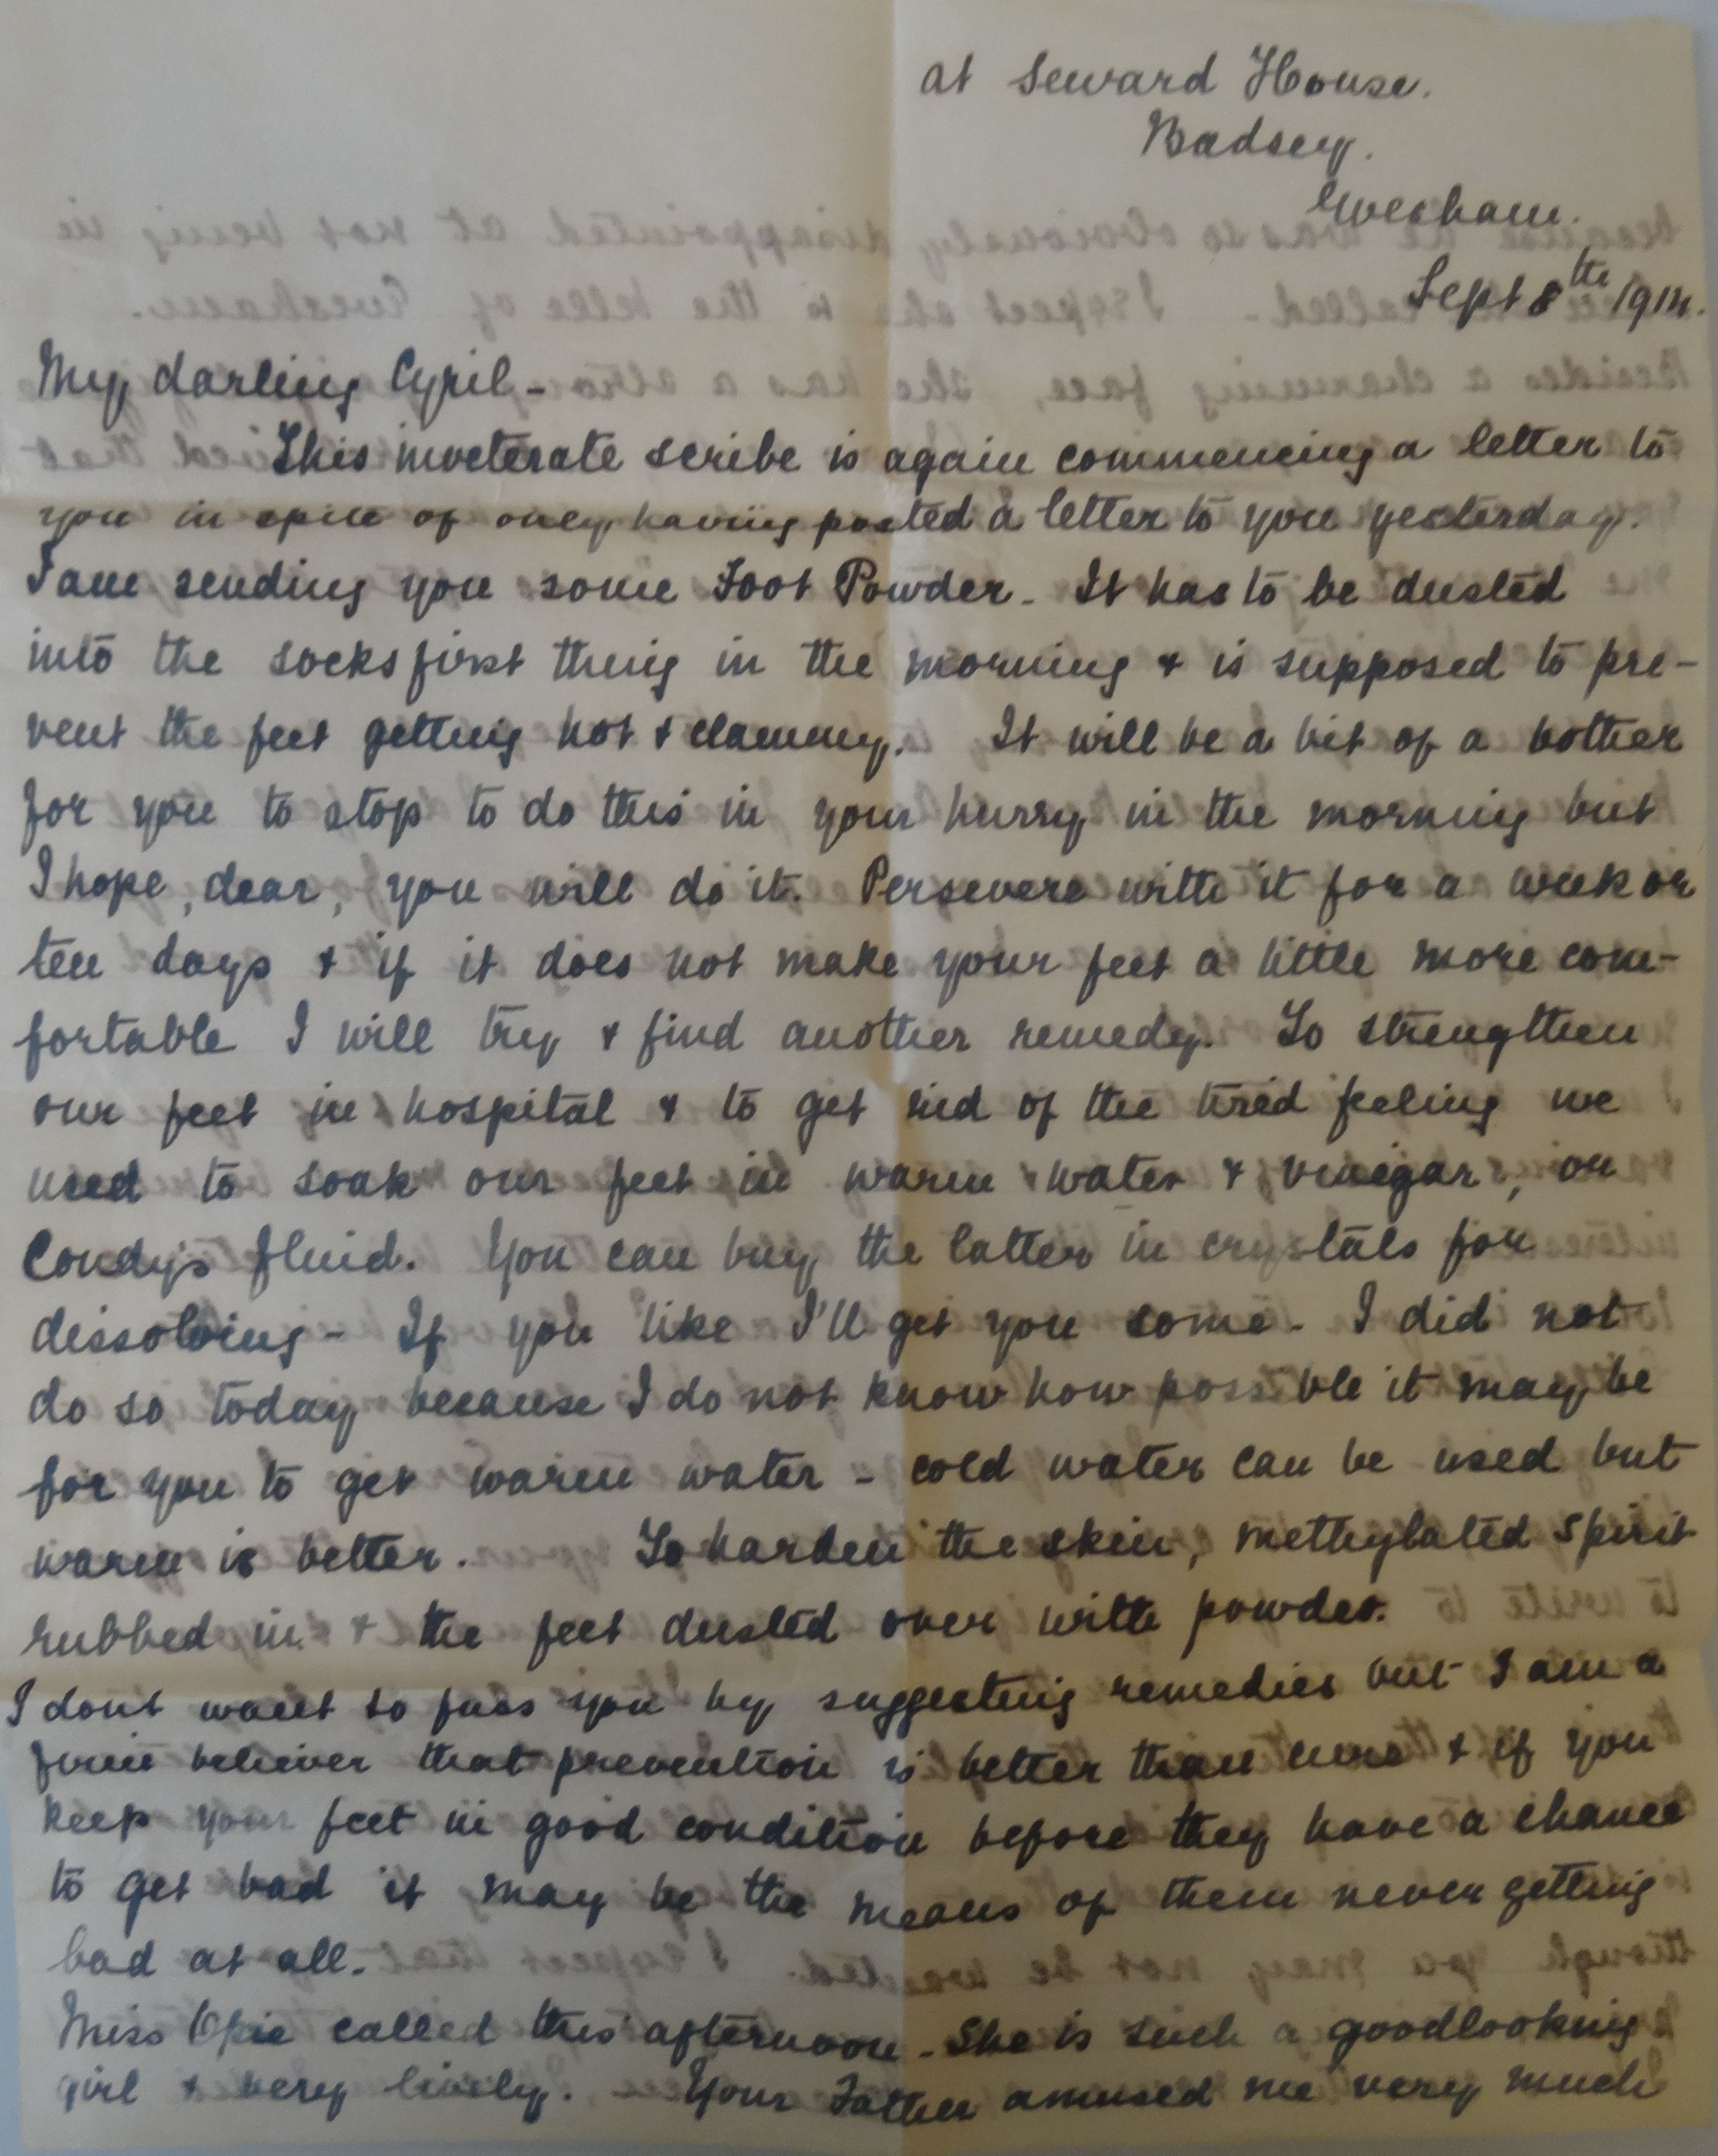 at Seward House.
Badsey.
Evesham.
Sept 8th 1914.
My darling Cyril -
This inveterate scribe is again commencing a letter to
you in spite of only having posted a letter to you yesterday.
I am sending you some Foot Powder - It has to be dusted
into the socks first thing in the morning & is supposed to pre-
vent the feet getting hot & clammy. It will be a bit of a bother
for you to stop to do this in your hurry in the morning but
I hope, dear, you will do it. Persevere with it for a week or
ten days & if it does not make your feet a little more com-
fortable I will try & find another remedy. To strengthen
our feet in hospital & to get rid of the tired feeling we
used to soak our feet in warm water & vinegar, or
Condy's fluid. You can buy the latter in crystals for
dissolving - If you like I'll get you some - I did not
do so today because I do not know how possible it may be
for you to get warm water - cold water can be used but
warm is better. To harden the skin, methylated spirit
rubbed in & the feet dusted over with powder.
I dont want to fuss you by suggesting remedies but I am a
firm believer that prevention is better than cure & if you
keep your feet in good condition before they have a chance
to get bad it may be the means of them never getting
bad at all.
Miss Opie called this afternoon - She is such a goodlooking
girl & very lively. - Your Father amused me very much